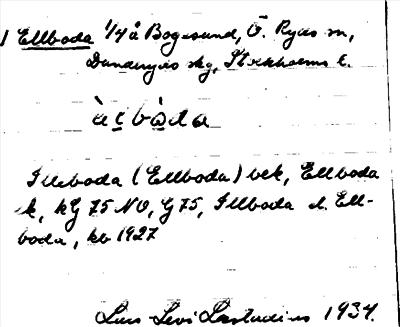 1 Ellboda 1/4 å Bogesund, Ö. Ryds sn,
Danderyds skg, Stockholms l.
Illeboda (Ellboda) bek, Ellboda
k, kG 75 NO, G 75, Illboda el. Ell-
boda, kb 1927
Lars Levi Læstadius 1934.